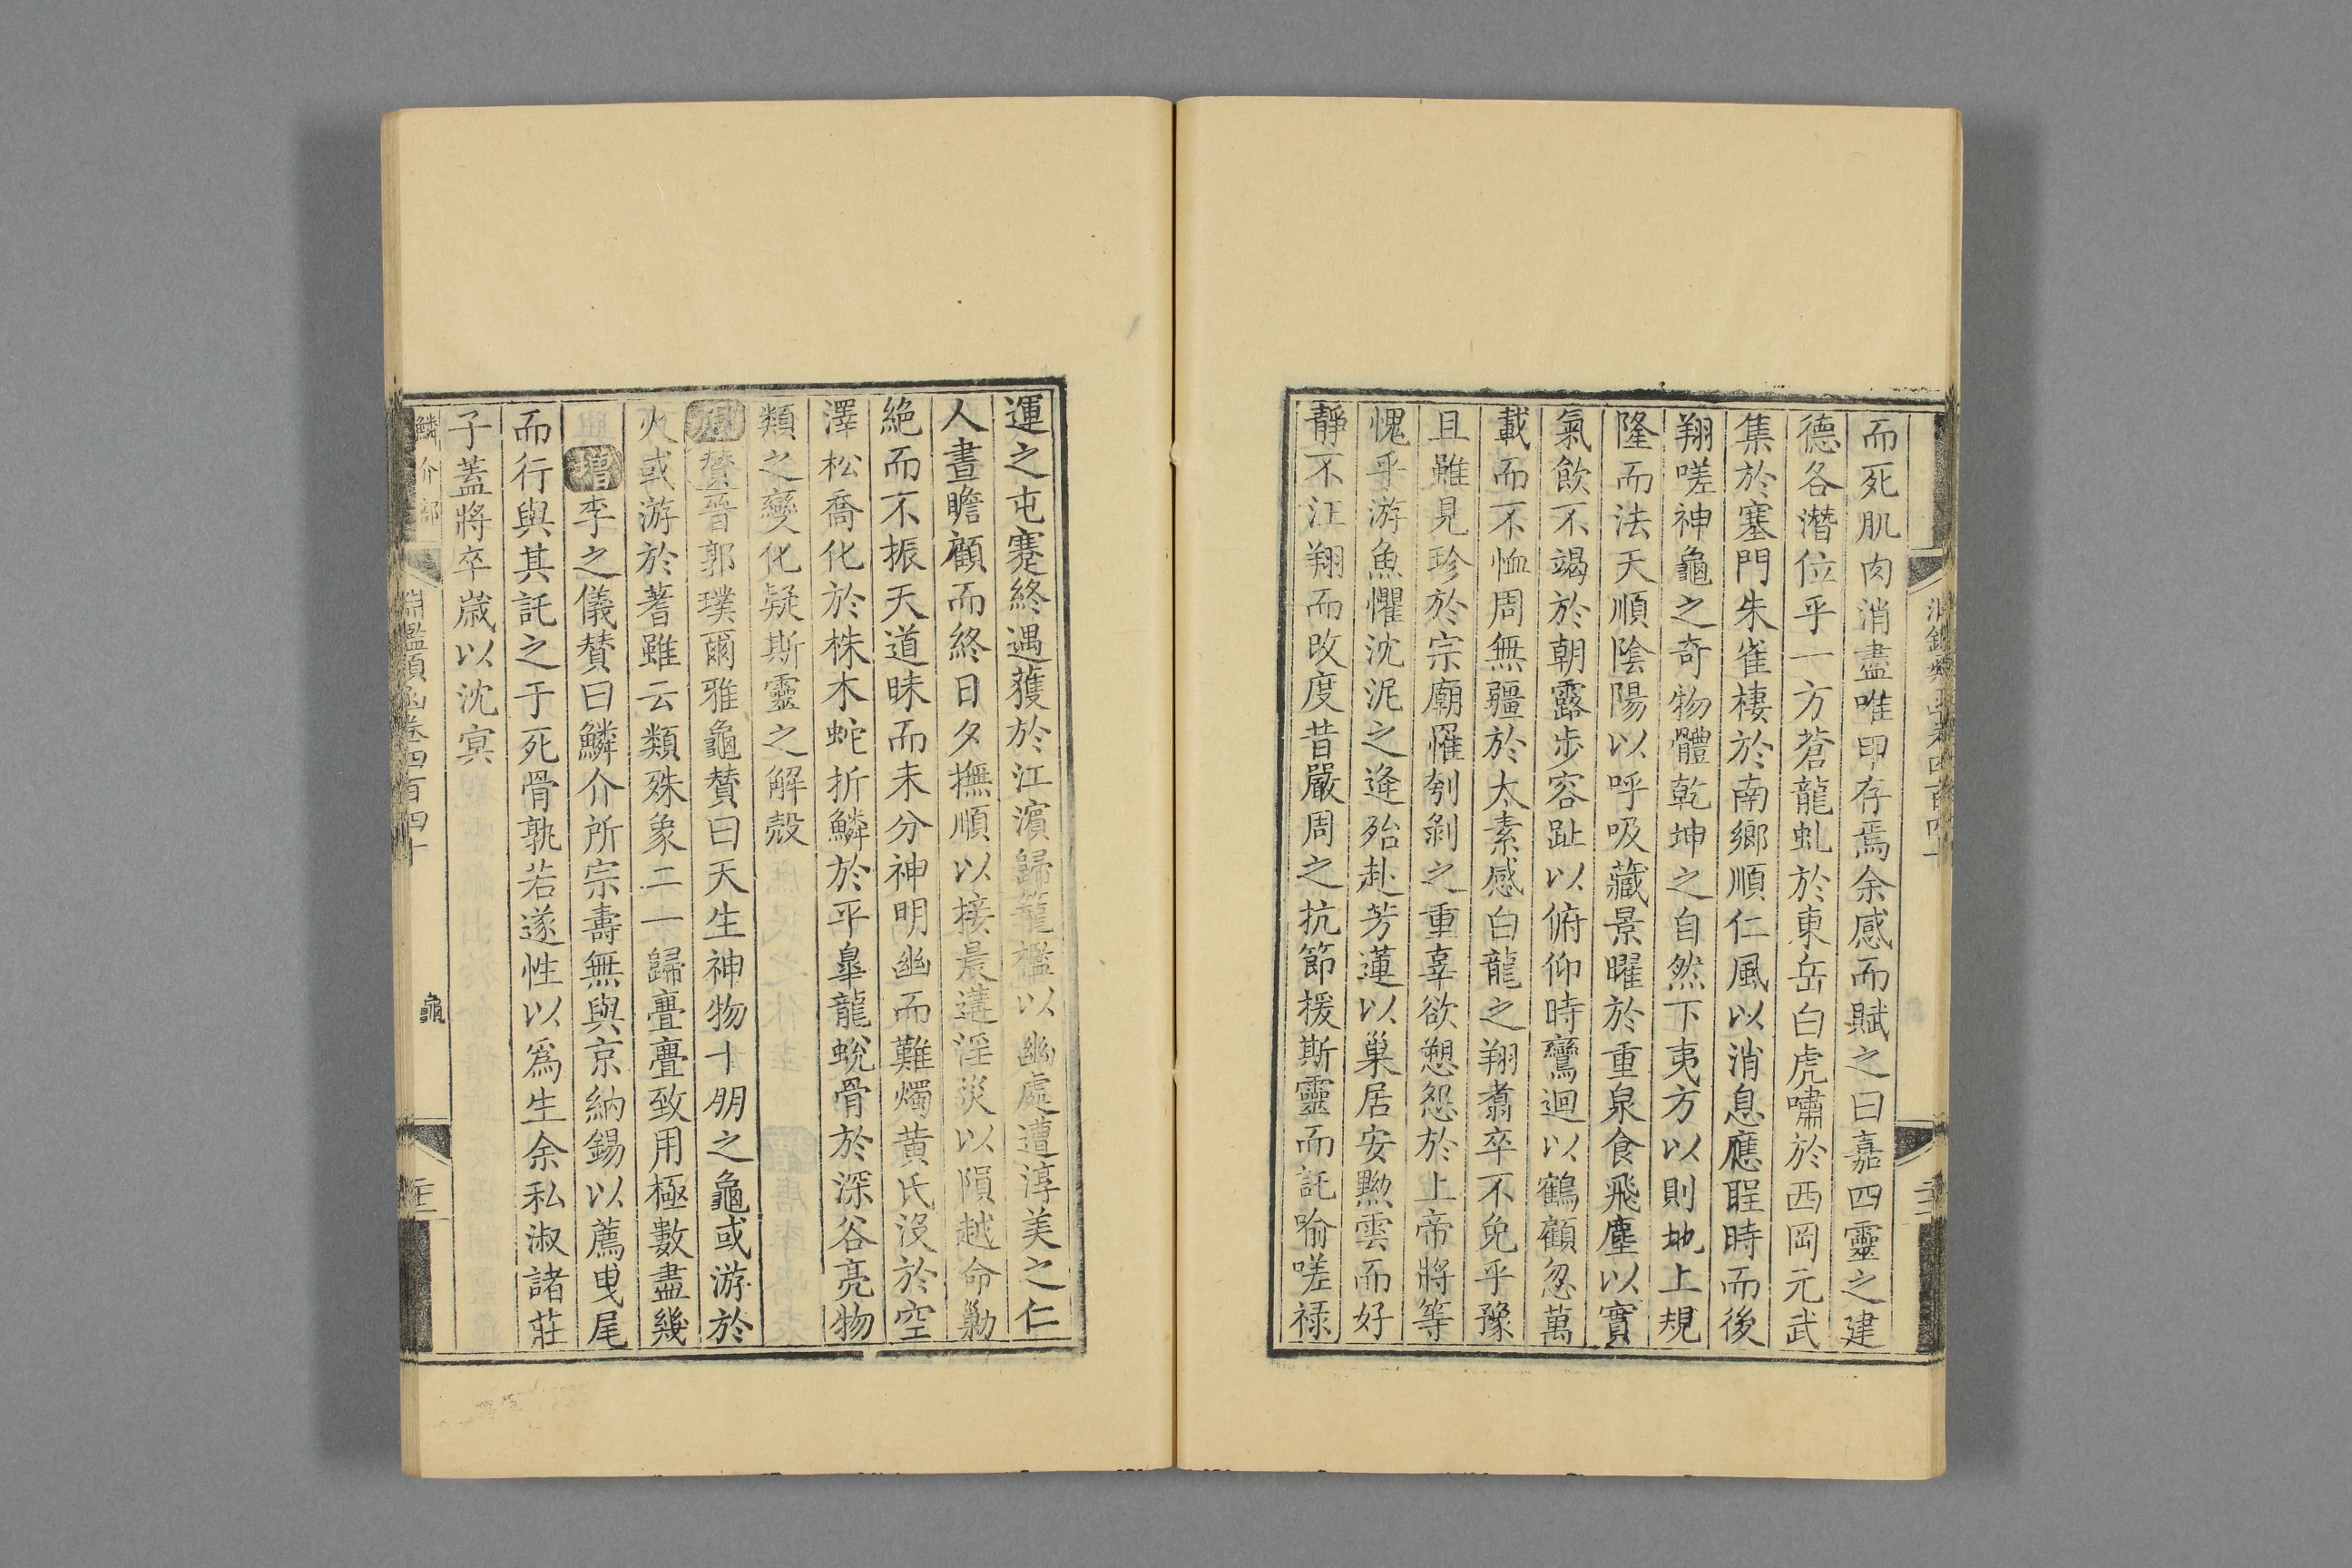 而死肌肉消盡唯甲存焉余感而賦之曰嘉四靈之建
德各潛位乎一方蒼龍虬於東岳白虎嘯於西岡元武
集於塞門朱雀棲於南鄉順仁風以消息應聖時而後
翔嗟神龜之奇物體乾坤之自然下夷方以則地上規
隆而法天順陰陽以呼吸藏景曜於重泉食飛塵以實
氣飲不竭於朝露步容趾以俯仰時鸞迴以鶴顧忽萬
載而不恤周無疆於太素感白龍之翔翥卒不免乎豫
且雖見珍於宗廟罹刳剥之重辜欲愬怨於上帝將等
愧乎游魚懼沈泥之逢殆赴芳蓮以巢居安黝雲而好
靜不汪翔而改度昔嚴周之抗節援斯靈而託喻嗟禄
運之屯蹇終遇獲於江濱歸籠檻以幽處遭淳美之仁
人晝瞻顧而終日夕撫順以接晨遘淫災以隕越命勦
絕而不振天道昧而未分神明幽而難燭黃氏沒於空
澤松喬化於株木蛇折鱗於平臯龍蛻骨於深谷亮物
類之變化疑斯靈之解殼
贊晉郭璞爾雅龜贊曰天生神物十朋之龜或游於
火或游於蓍雖云類殊象二一歸亹亹致用極數盡幾
增李之儀贊曰鱗介所宗壽無與京納錫以薦曵尾
而行與其託之于死骨孰若遂性以爲生余私淑諸莊
子蓋將卒歲以沈㝠
鱗介部
淵鑑類函卷四百四十
龜